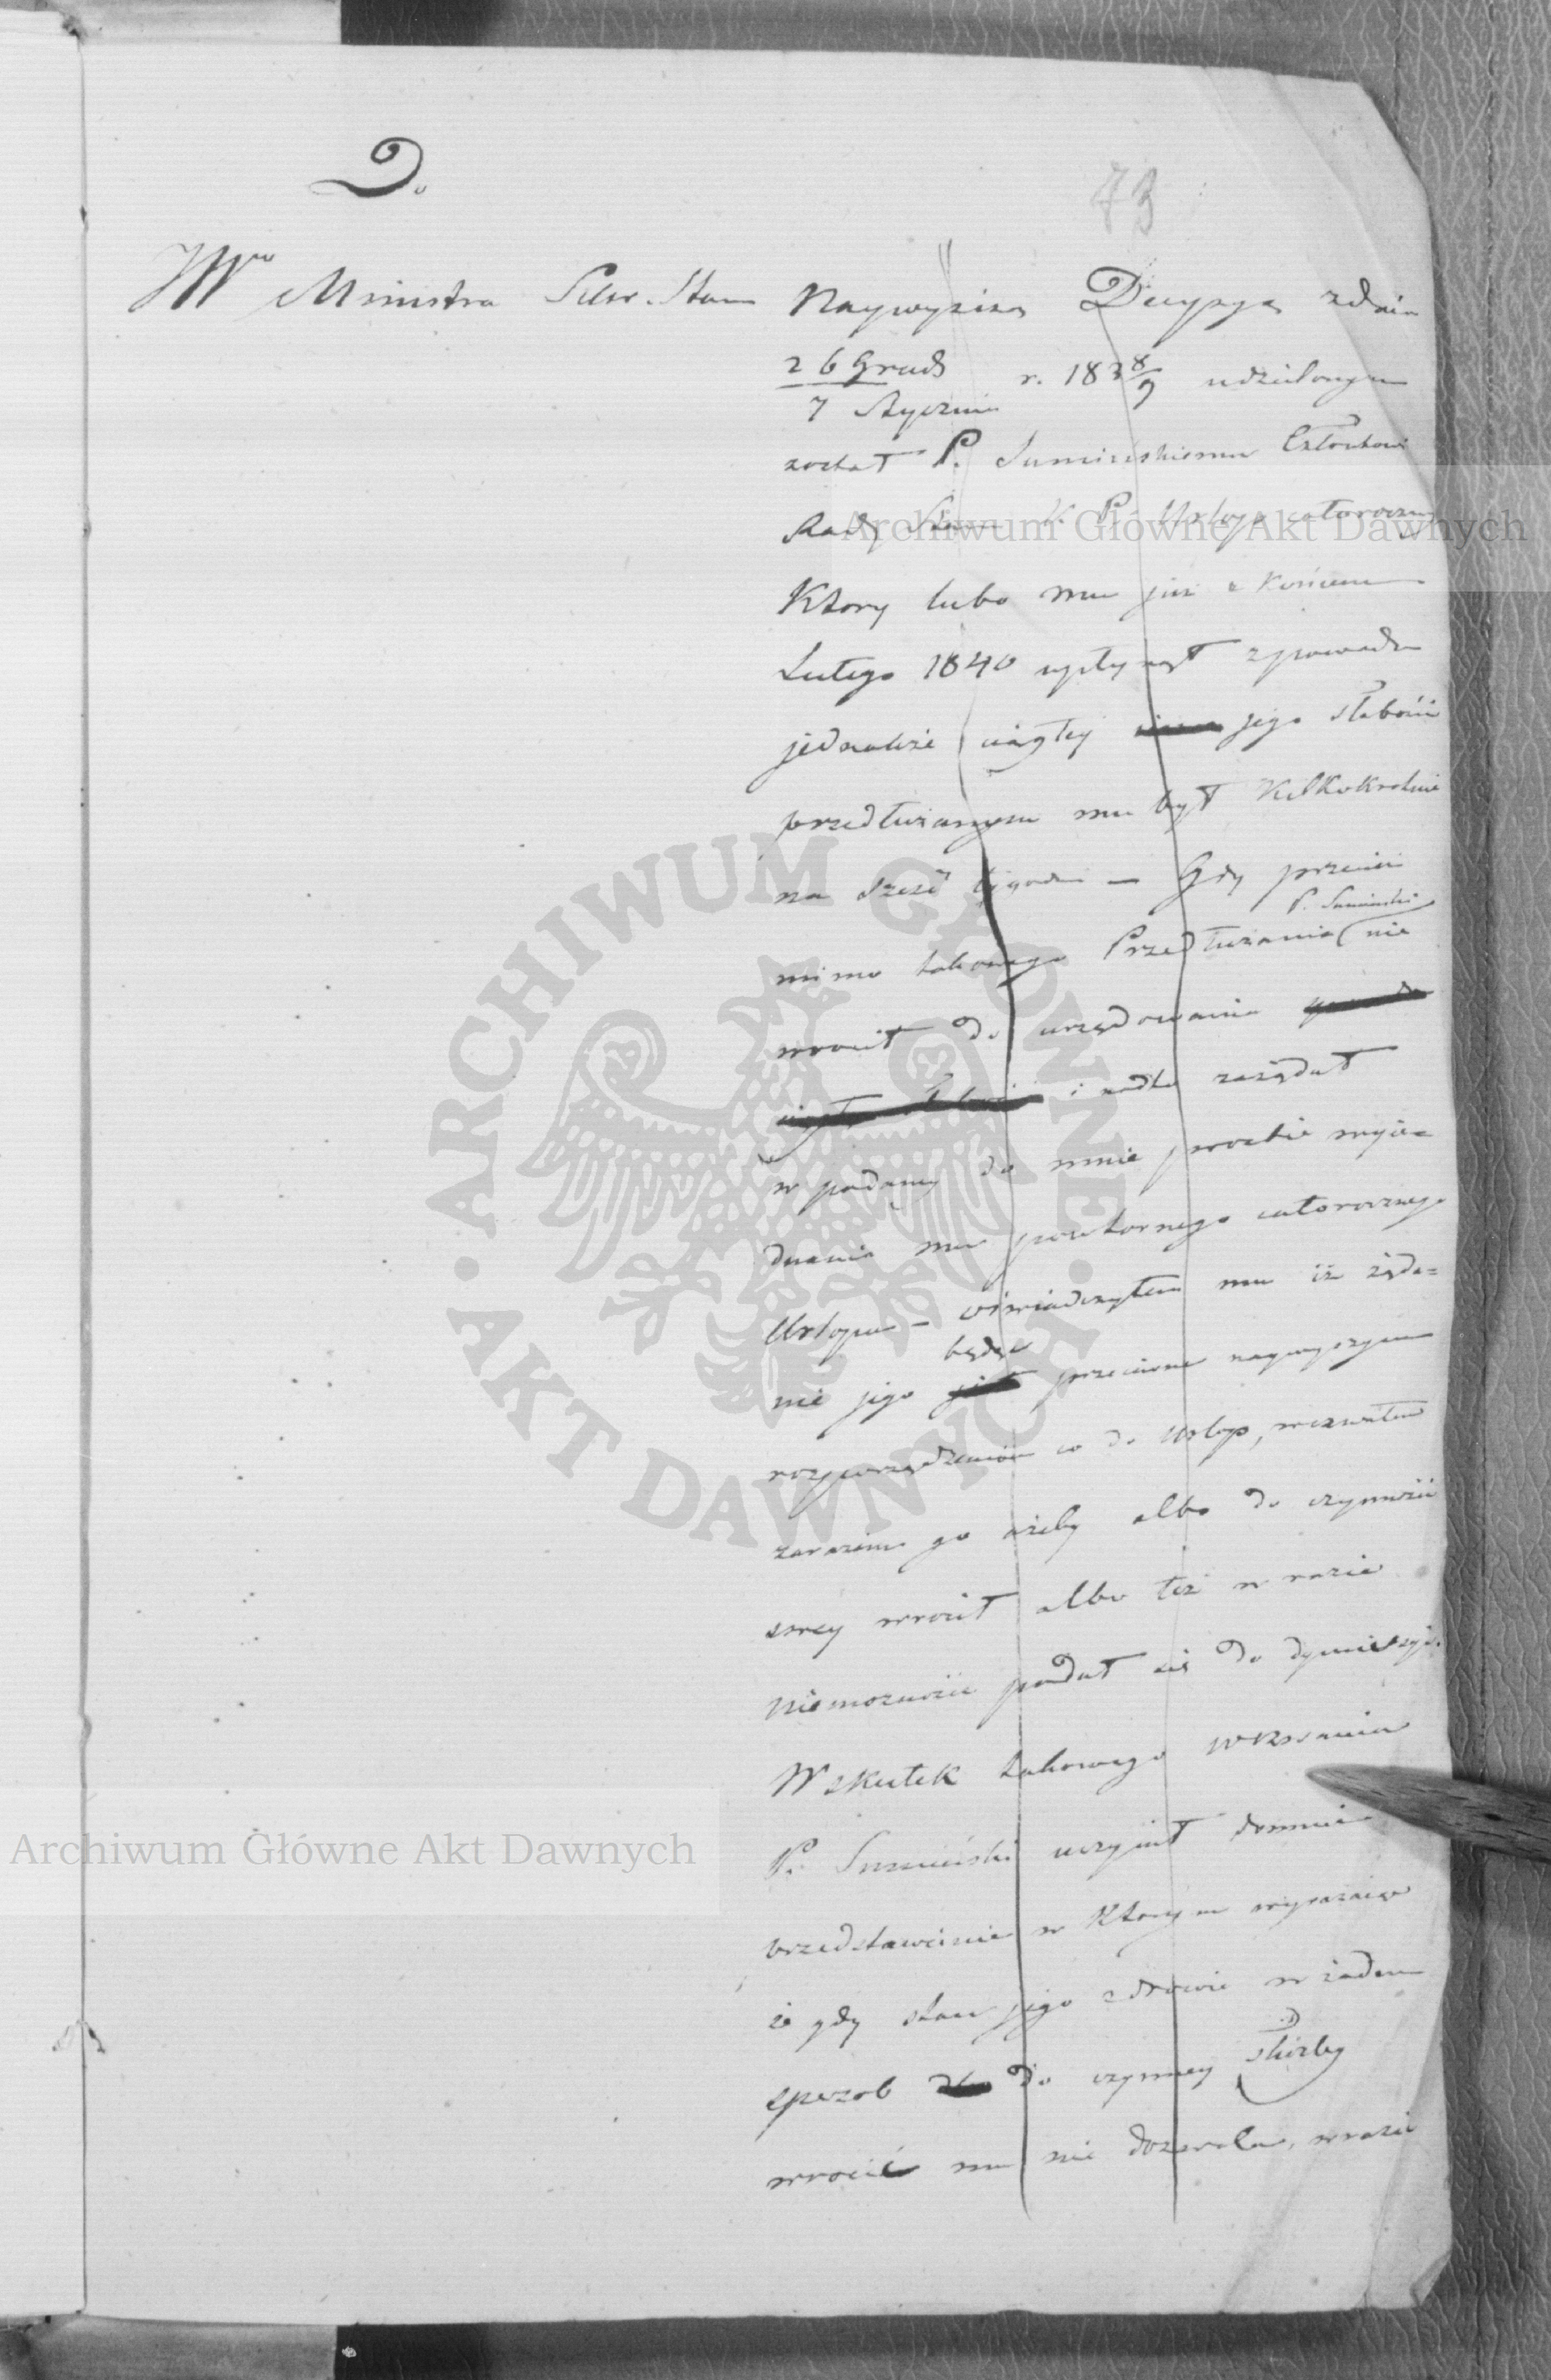 Do
73
JWo Ministra Sekr. Stanu
Naywyższą Decyzyą z dnia
26 Grud
7 Stycznia r. 1838/9 udzielonym
został P. Sumińskiemu Członkowi
Rady Stanu K. P. Urlop całoroczny
Ktory lubo mu już z Końcem
Lutego 1840 upłynął z powodu
jednakże ciągłey jego słabości
przedłużanym mu był Kilkokrotnie
na sześć tygodni — Gdy przecież
P. Sumiński
mimo takowego Przedłużania nie
wrocił do urzędowania
i nadto zażądał
w podaney do mnie prozbie wyje=
dnania mu powtornego całorocznego
Urlopu — oświadczyłem mu iż żąda=
będąc
nie jego przeciwne naywyższym
rozporządzeniom co do Urlop, wezwałem
zarazem go ażeby albo do czynności
swey wrocił albo też w razie
niemożności podał się do dymissyi.
W skutek takowego wezwania
P. Sumiński uczynił do mnie
przedstawienie w Ktorym wyrażając
że gdy stan jego zdrowia w żaden
sposob do czynney służby
wrocić mu nie dozwala, w razie
Archiwum Główne Akt Dawnych
Archiwum Główne Akt Dawnych
ARCHIWUM GŁÓWNE AKT DAWNYCH